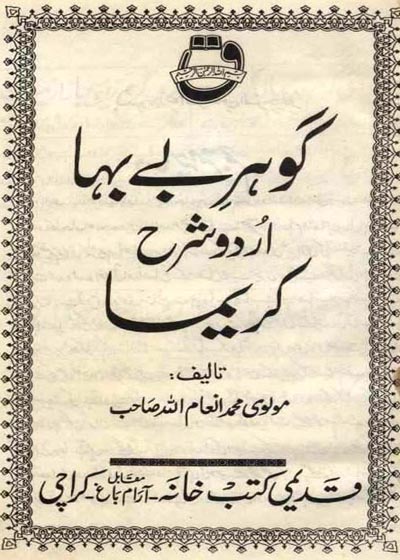 گوہر بے بہا
اردو شرح
کریما
تالیف:
مولوی محمد انعام اللہ صاحب
قدیمی کتب خانہ - مقابل آرام باغ - کراچی